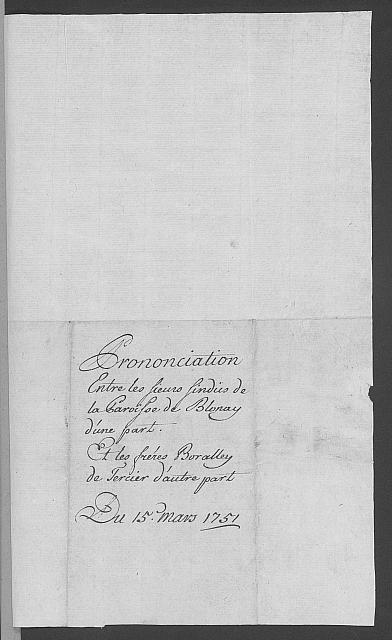 Prononciation
Entre les sieurs sindics de
la Paroisse de Blonay
d'une part.
Et les fréres Boralley
de Tercier d'autre part
Du 15.e mars 1751